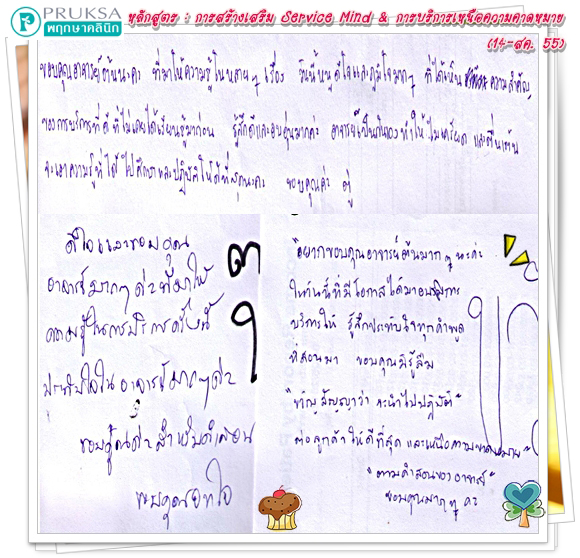 PRUKSA
พฤกษาคลินิก
หลักสูตร : การสร้างเสริม Service Mind & การบริการเหนือความคาดหมาย
(14-สค. 55)
ขอบคุณอาจารย์ต้นนะคะ ที่มาให้ความรู้ในหลายๆ เรื่อง วันนี้หนูดีใจและภูมิใจมากๆ ที่ได้เห็น ความสำคัญ
ของการบริการที่ดี ที่ไม่เคยได้เรียนรู้มาก่อน รู้สึกดีและอบอุ่นมากค่ะ อาจารย์เป็นกันเองทำให้ไม่เครียด และตื่นเต้น
จะเอาความรู้ที่ได้ไปศึกษาและปฏิบัติให้ดีที่สุดนะคะ ขอบคุณค่ะ
ดีใจและขอบคุณ
อาจารย์มากๆ ค่ะที่มาให้
ความรู้ในการบริการครั้งนี้
ประทับใจในอาจารย์มากๆ ค่ะ
ขอบคุณค่ะสำหรับคำสอน
ขอบคุณจากใจ
อยากขอบคุณอาจารย์ต้นมากๆ นะค่ะ
ในวันนี้ที่มีโอกาสได้มาอบรมการ
บริการให้ รู้สึกประทับใจทุกคำพูด
ที่สอนมา ขอบคุณมิรู้ลืม
"ขวัญสัญญาว่า จะนำไปปฏิบัติ"
ต่อลูกค้าให้ดีที่สุด และเหนือความคาดหมาย"
"ตามคำสอนของอาจารย์"
ขอบคุณมากๆ คะ